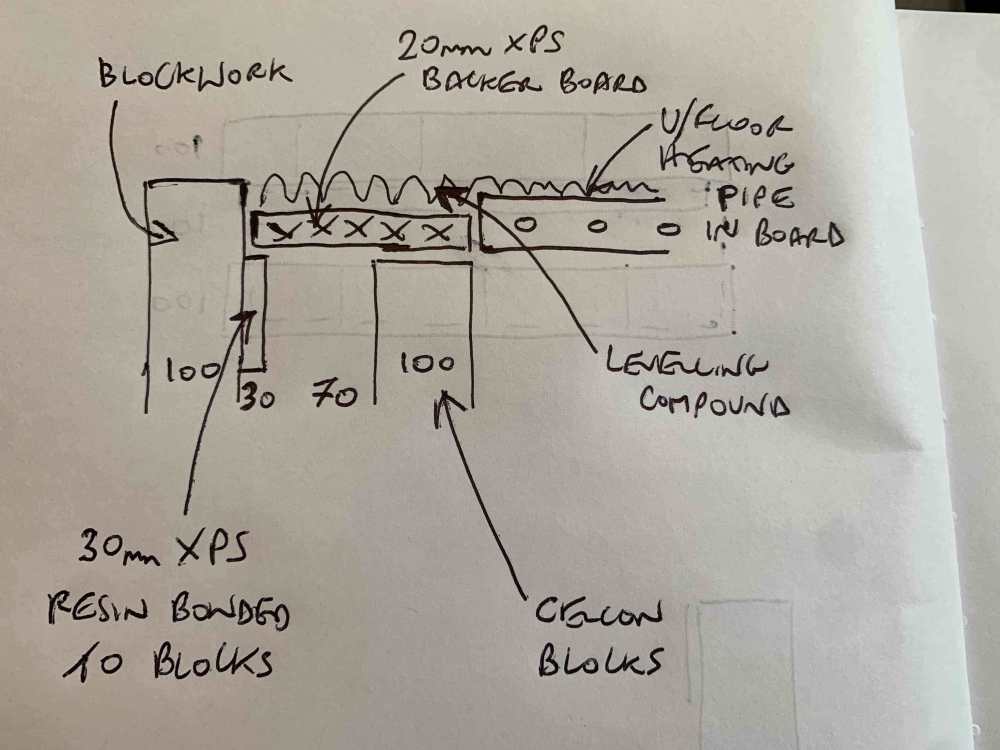 20mm XPS
BACKER BOARD
BLOCKWORK
U/FLOOR
HEATING
PIPE
IN BOARD
LEVELLING
COMPOUND
100
30
70
100
30mm XPS
RESIN BONDED
TO BLOCKS
CELCON
BLOCKS